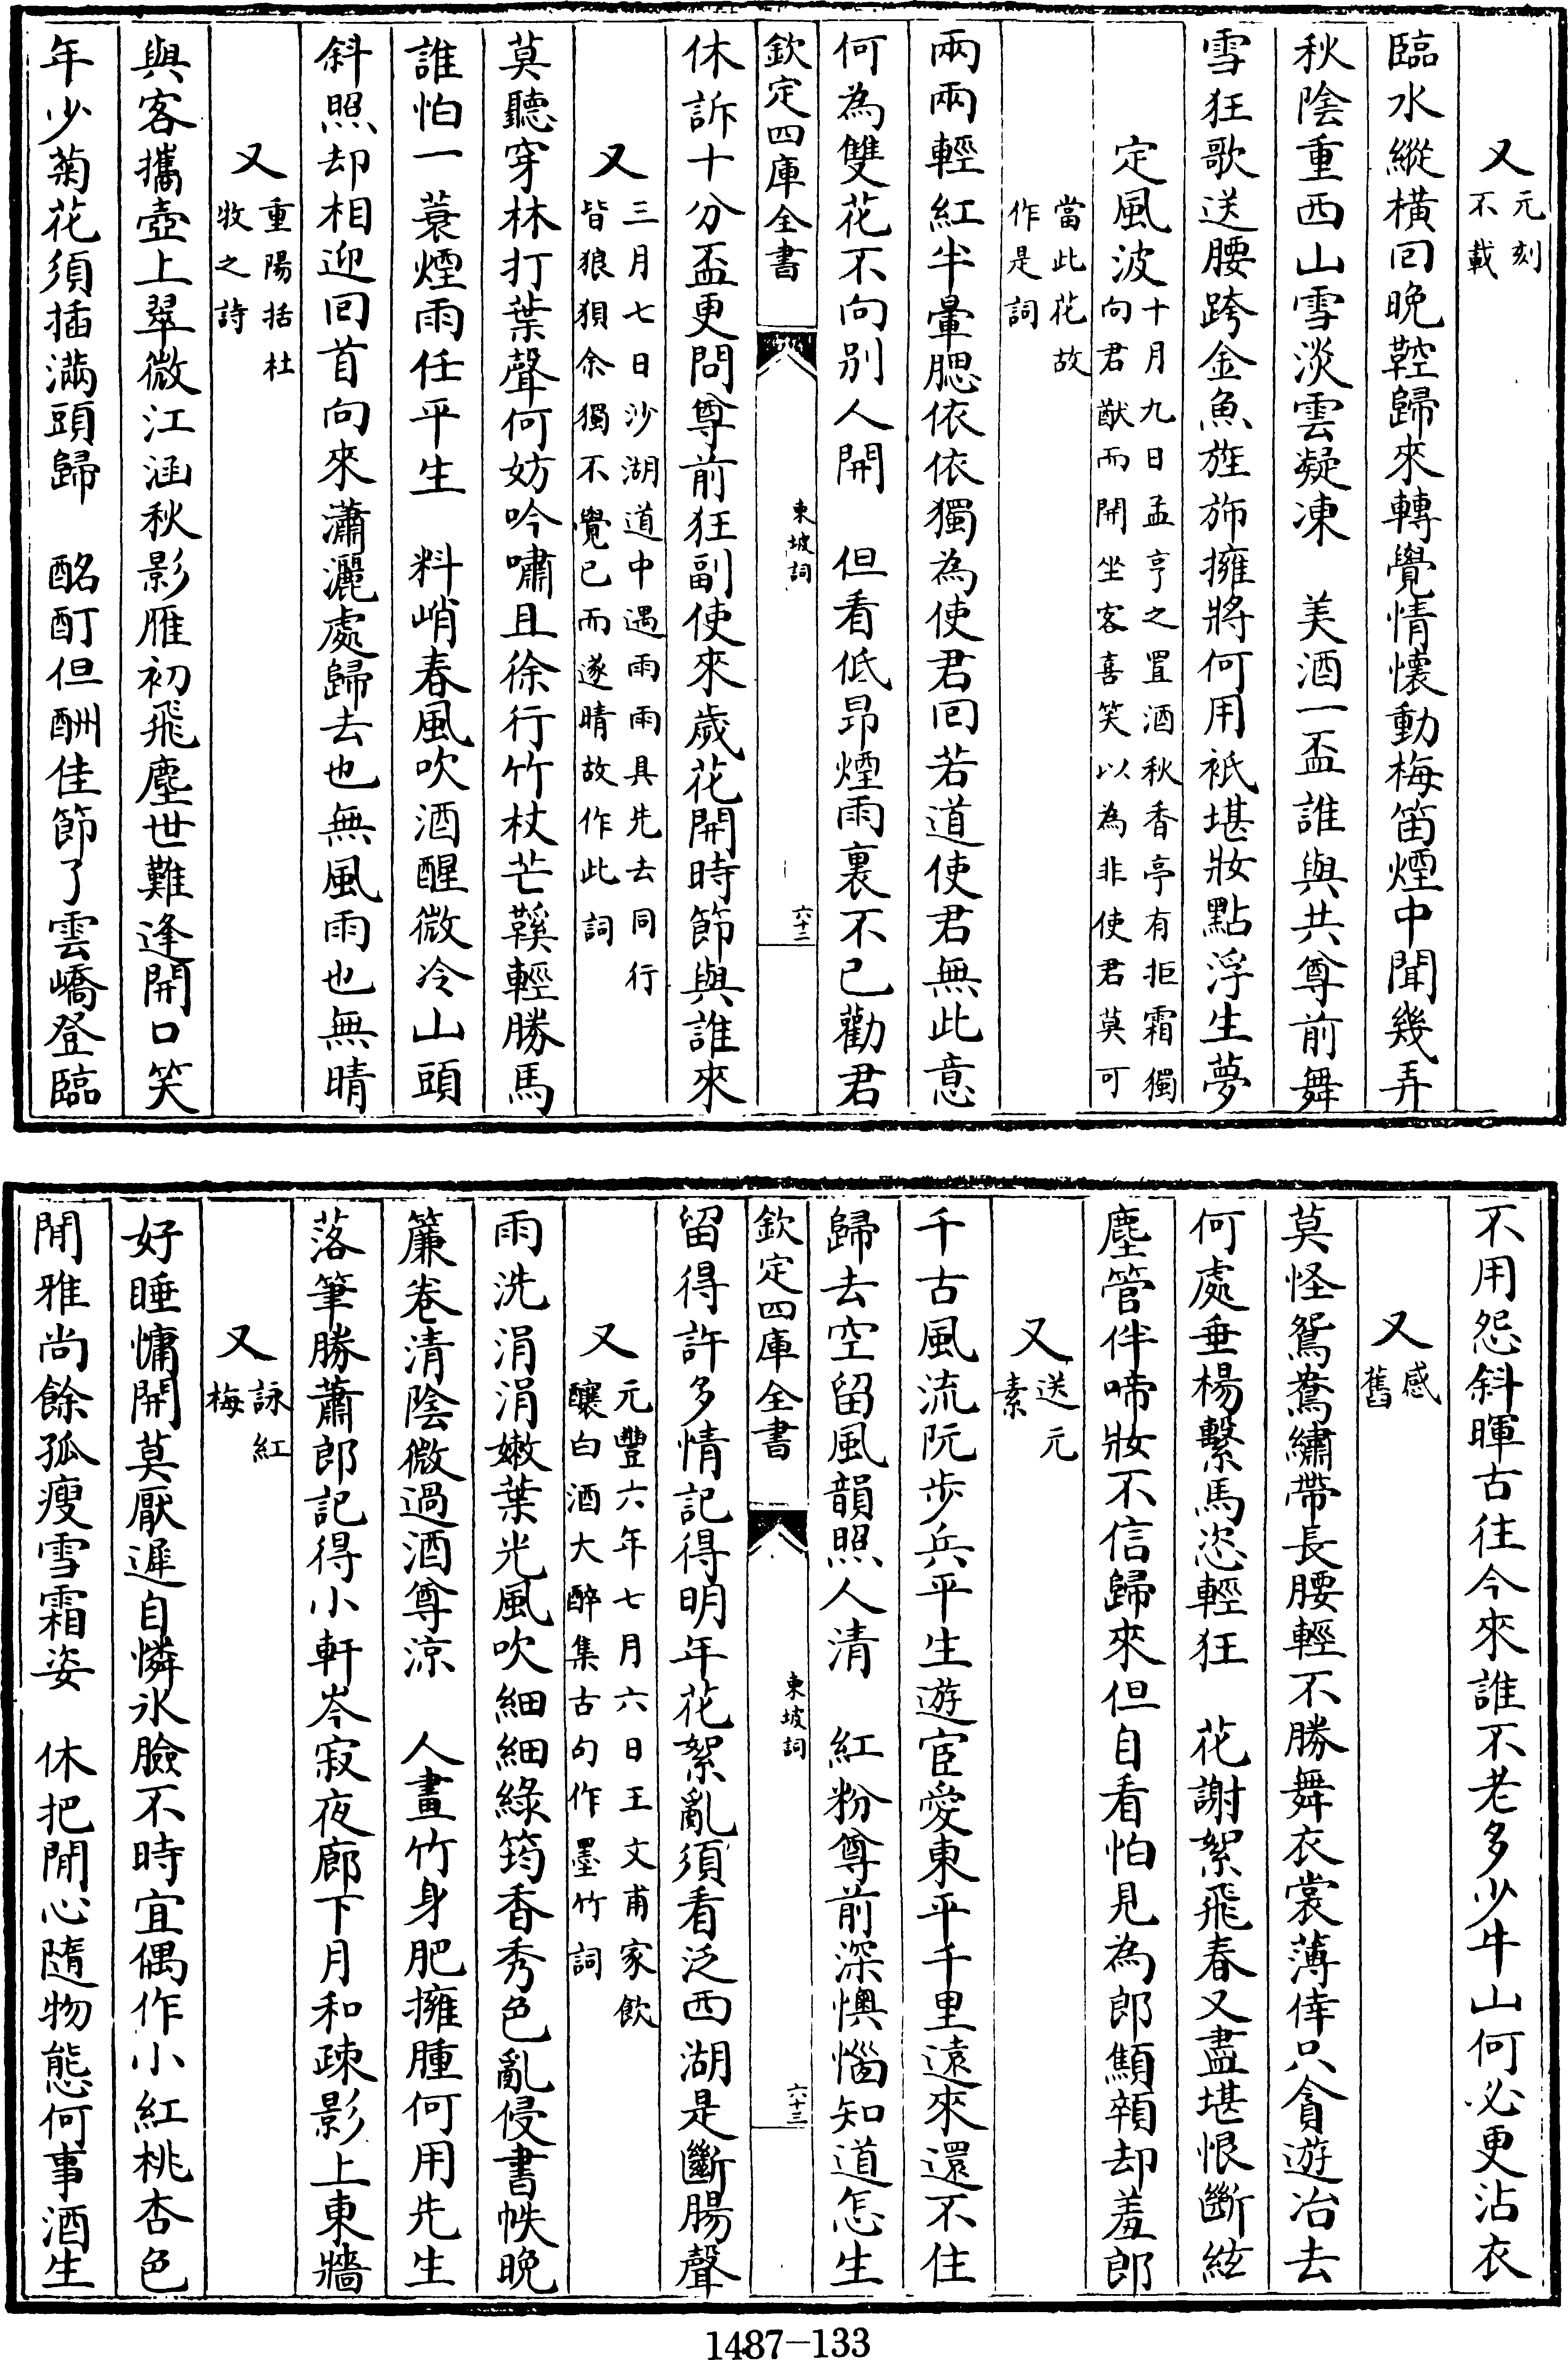 又元刻不載
臨水縱橫回晚鞚歸來轉覺情懷動梅笛煙中聞幾弄
秋陰重西山雪淡雲凝凍　美酒一盃誰與共尊前舞
雪狂歌送腰跨金魚旌斾擁將何用袛堪妝點浮生夢
定風波十月九日孟亨之置酒秋香亭有拒霜獨向君猷而開坐客喜笑以為非使君莫可
當此花故作是詞
兩兩輕紅半暈腮依依獨為使君回若道使君無此意
何為雙花不向别人開　但看低昂煙雨裏不已勸君
欽定四庫全書
東坡詞
六十二
休訴十分盃更問尊前狂副使來歲花開時節與誰來
又三月七日沙湖道中遇雨雨具先去同行皆狼狽余獨不覺已而遂晴故作此詞
莫聽穿林打葉聲何妨吟嘯且徐行竹杖芒鞵輕勝馬
誰怕一蓑煙雨任平生　料峭春風吹酒醒微冷山頭
斜照却相迎回首向來瀟灑處歸去也無風雨也無晴
又重陽括杜牧之詩
與客攜壺上翠微江涵秋影雁初飛塵世難逢開口笑
年少菊花須插滿頭歸　酩酊但酬佳節了雲嶠登臨
不用怨斜暉古往今來誰不老多少牛山何必更沾衣
又感舊
莫怪鴛鴦繡帶長腰輕不勝舞衣裳薄倖只貪遊冶去
何處垂楊繫馬恣輕狂　花謝絮飛春又盡堪恨斷絃
塵管伴啼妝不信歸來但自看怕見為郎顦顇却羞郎
又送元素
千古風流阮步兵平生遊宦愛東平千里遠來還不住
歸去空留風韻照人清　紅粉尊前深懊惱知道怎生
欽定四庫全書
東坡詞
六十三
留得許多情記得明年花絮亂須看泛西湖是斷腸聲
又元豐六年七月六日王文甫家飲釀白酒大醉集古句作墨竹詞
雨洗涓涓嫩葉光風吹細細綠筠香秀色亂侵書帙晚
簾卷清陰微過酒尊涼　人畫竹身肥擁腫何用先生
落筆勝蕭郎記得小軒岑寂夜廊下月和疎影上東牆
又詠紅梅
好睡慵開莫厭遲自憐氷臉不時宜偶作小紅桃杏色
閒雅尚餘孤瘦雪霜姿　休把閒心隨物態何事酒生
1487-133